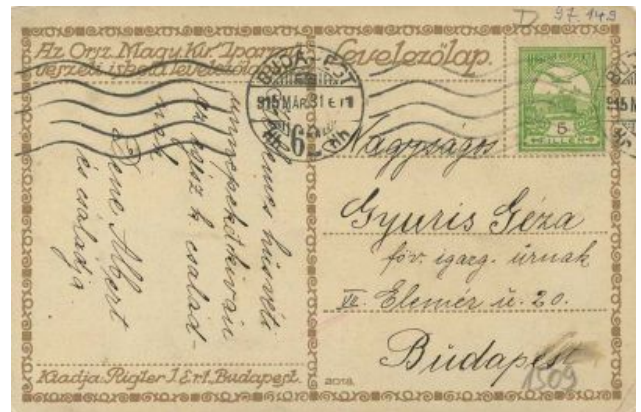 D 97.149
Az Orsz. Magy. Kir. Iparmű-
vészeti iskola levelezőlap
Levelezőlap.
BUDAPEST
915 MÁR. 31 E 11
62
5
FILLÉR
Kellemes húsvéti
ünnepeket kíván
az egész k. család-
nak
Dene Albert
és családja.
Nagyságos
Gyuris Géza
föv. igazg. úrnak
VII. Elemér u. 20.
Budapest
1509
Kiadja Rigler J. E. r.t., Budapest.